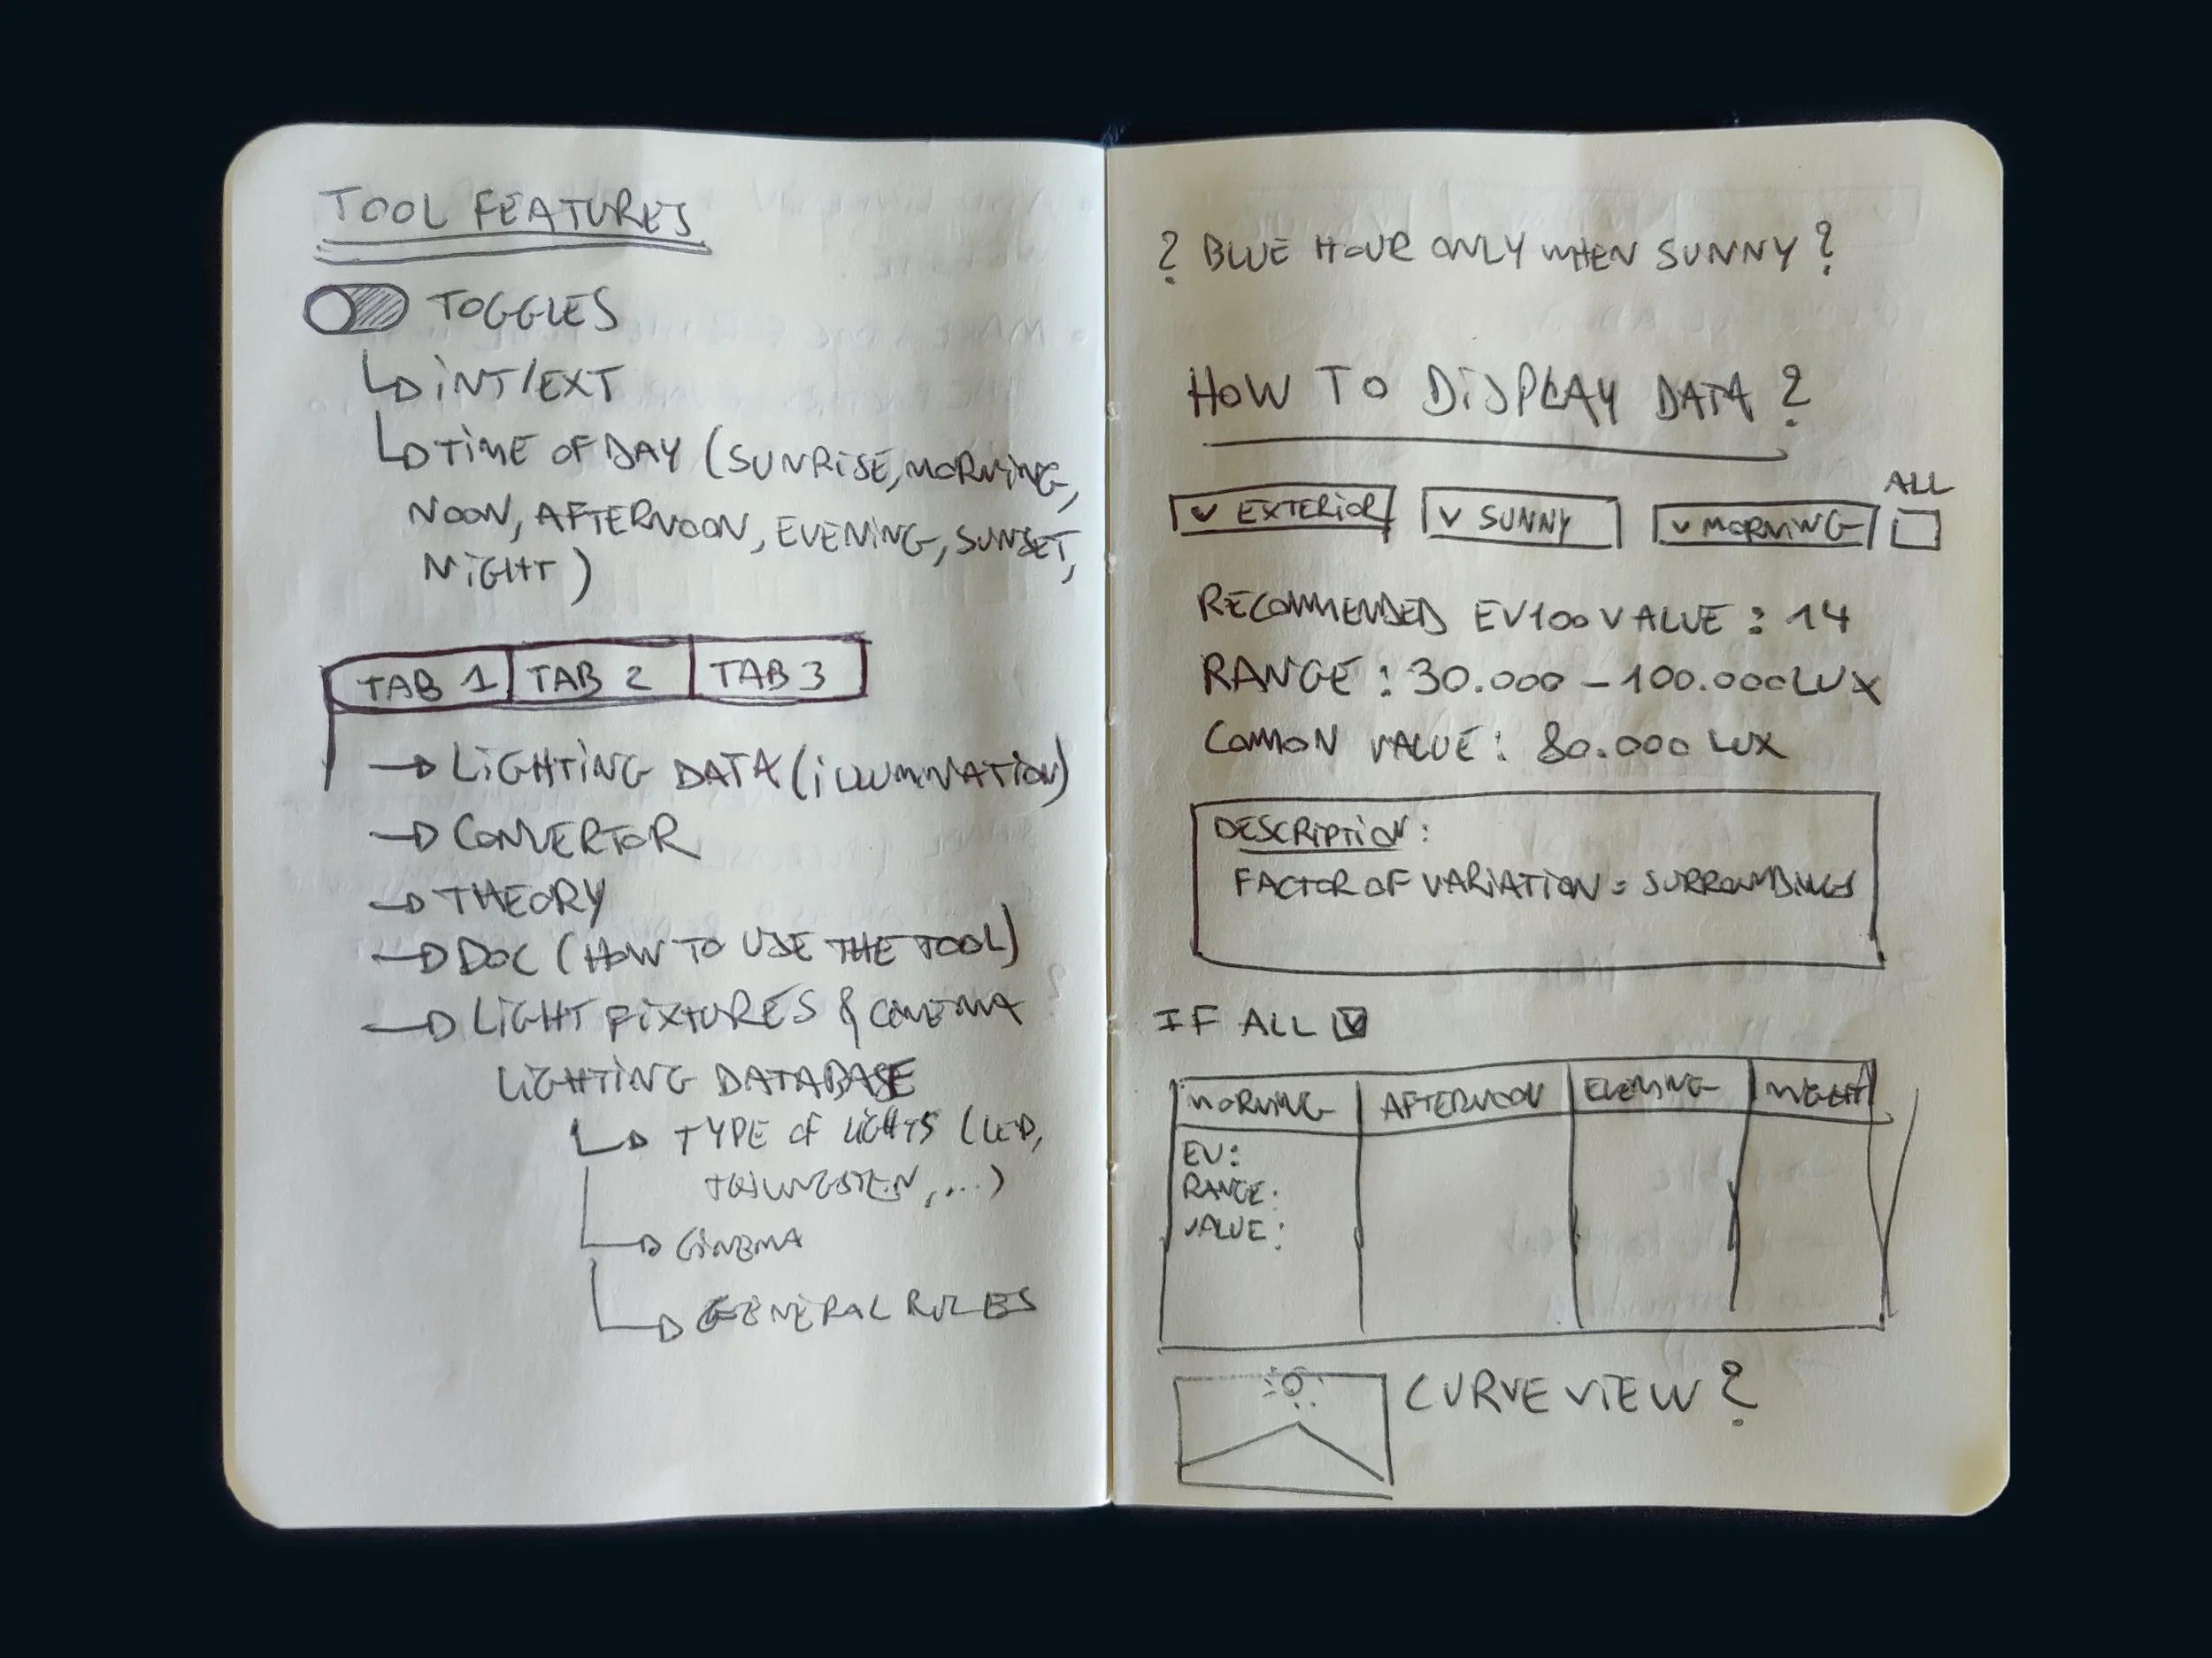 TOOL FEATURES
TOGGLES
INT/EXT
TIME OF DAY (SUNRISE, MORNING,
NOON, AFTERNOON, EVENING, SUNSET,
NIGHT)
TAB 1 TAB 2 TAB 3
LIGHTING DATA (ILLUMINATION)
CONVERTOR
THEORY
DOC (HOW TO USE THE TOOL)
LIGHT FIXTURES & CINEMA
LIGHTING DATABASE
TYPE OF LIGHTS (LED,
...)
CINEMA
GENERAL RULES
? BLUE HOUR ONLY WHEN SUNNY ?
HOW TO DISPLAY DATA ?
ALL
EXTERIOR SUNNY MORNING
RECOMMENDED EV100 VALUE : 14
RANGE : 30.000 - 100.000 LUX
COMMON VALUE : 80.000 LUX
DESCRIPTION :
FACTOR OF VARIATION = SURROUNDINGS
IF ALL
MORNING AFTERNOON EVENING NIGHT
EV :
RANGE :
VALUE :
CURVE VIEW ?